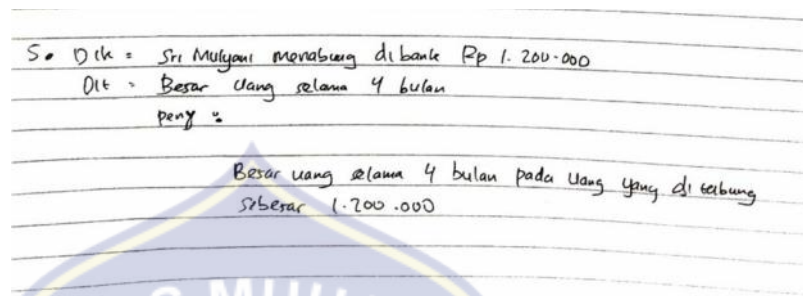 5. Dik = Sri Mulyani menabung dibank Rp 1.200.000
Dit = Besar Uang selama 4 bulan
peny :
Besar uang selama 4 bulan pada Uang yang di tabung
sebesar 1.200.000
MUH